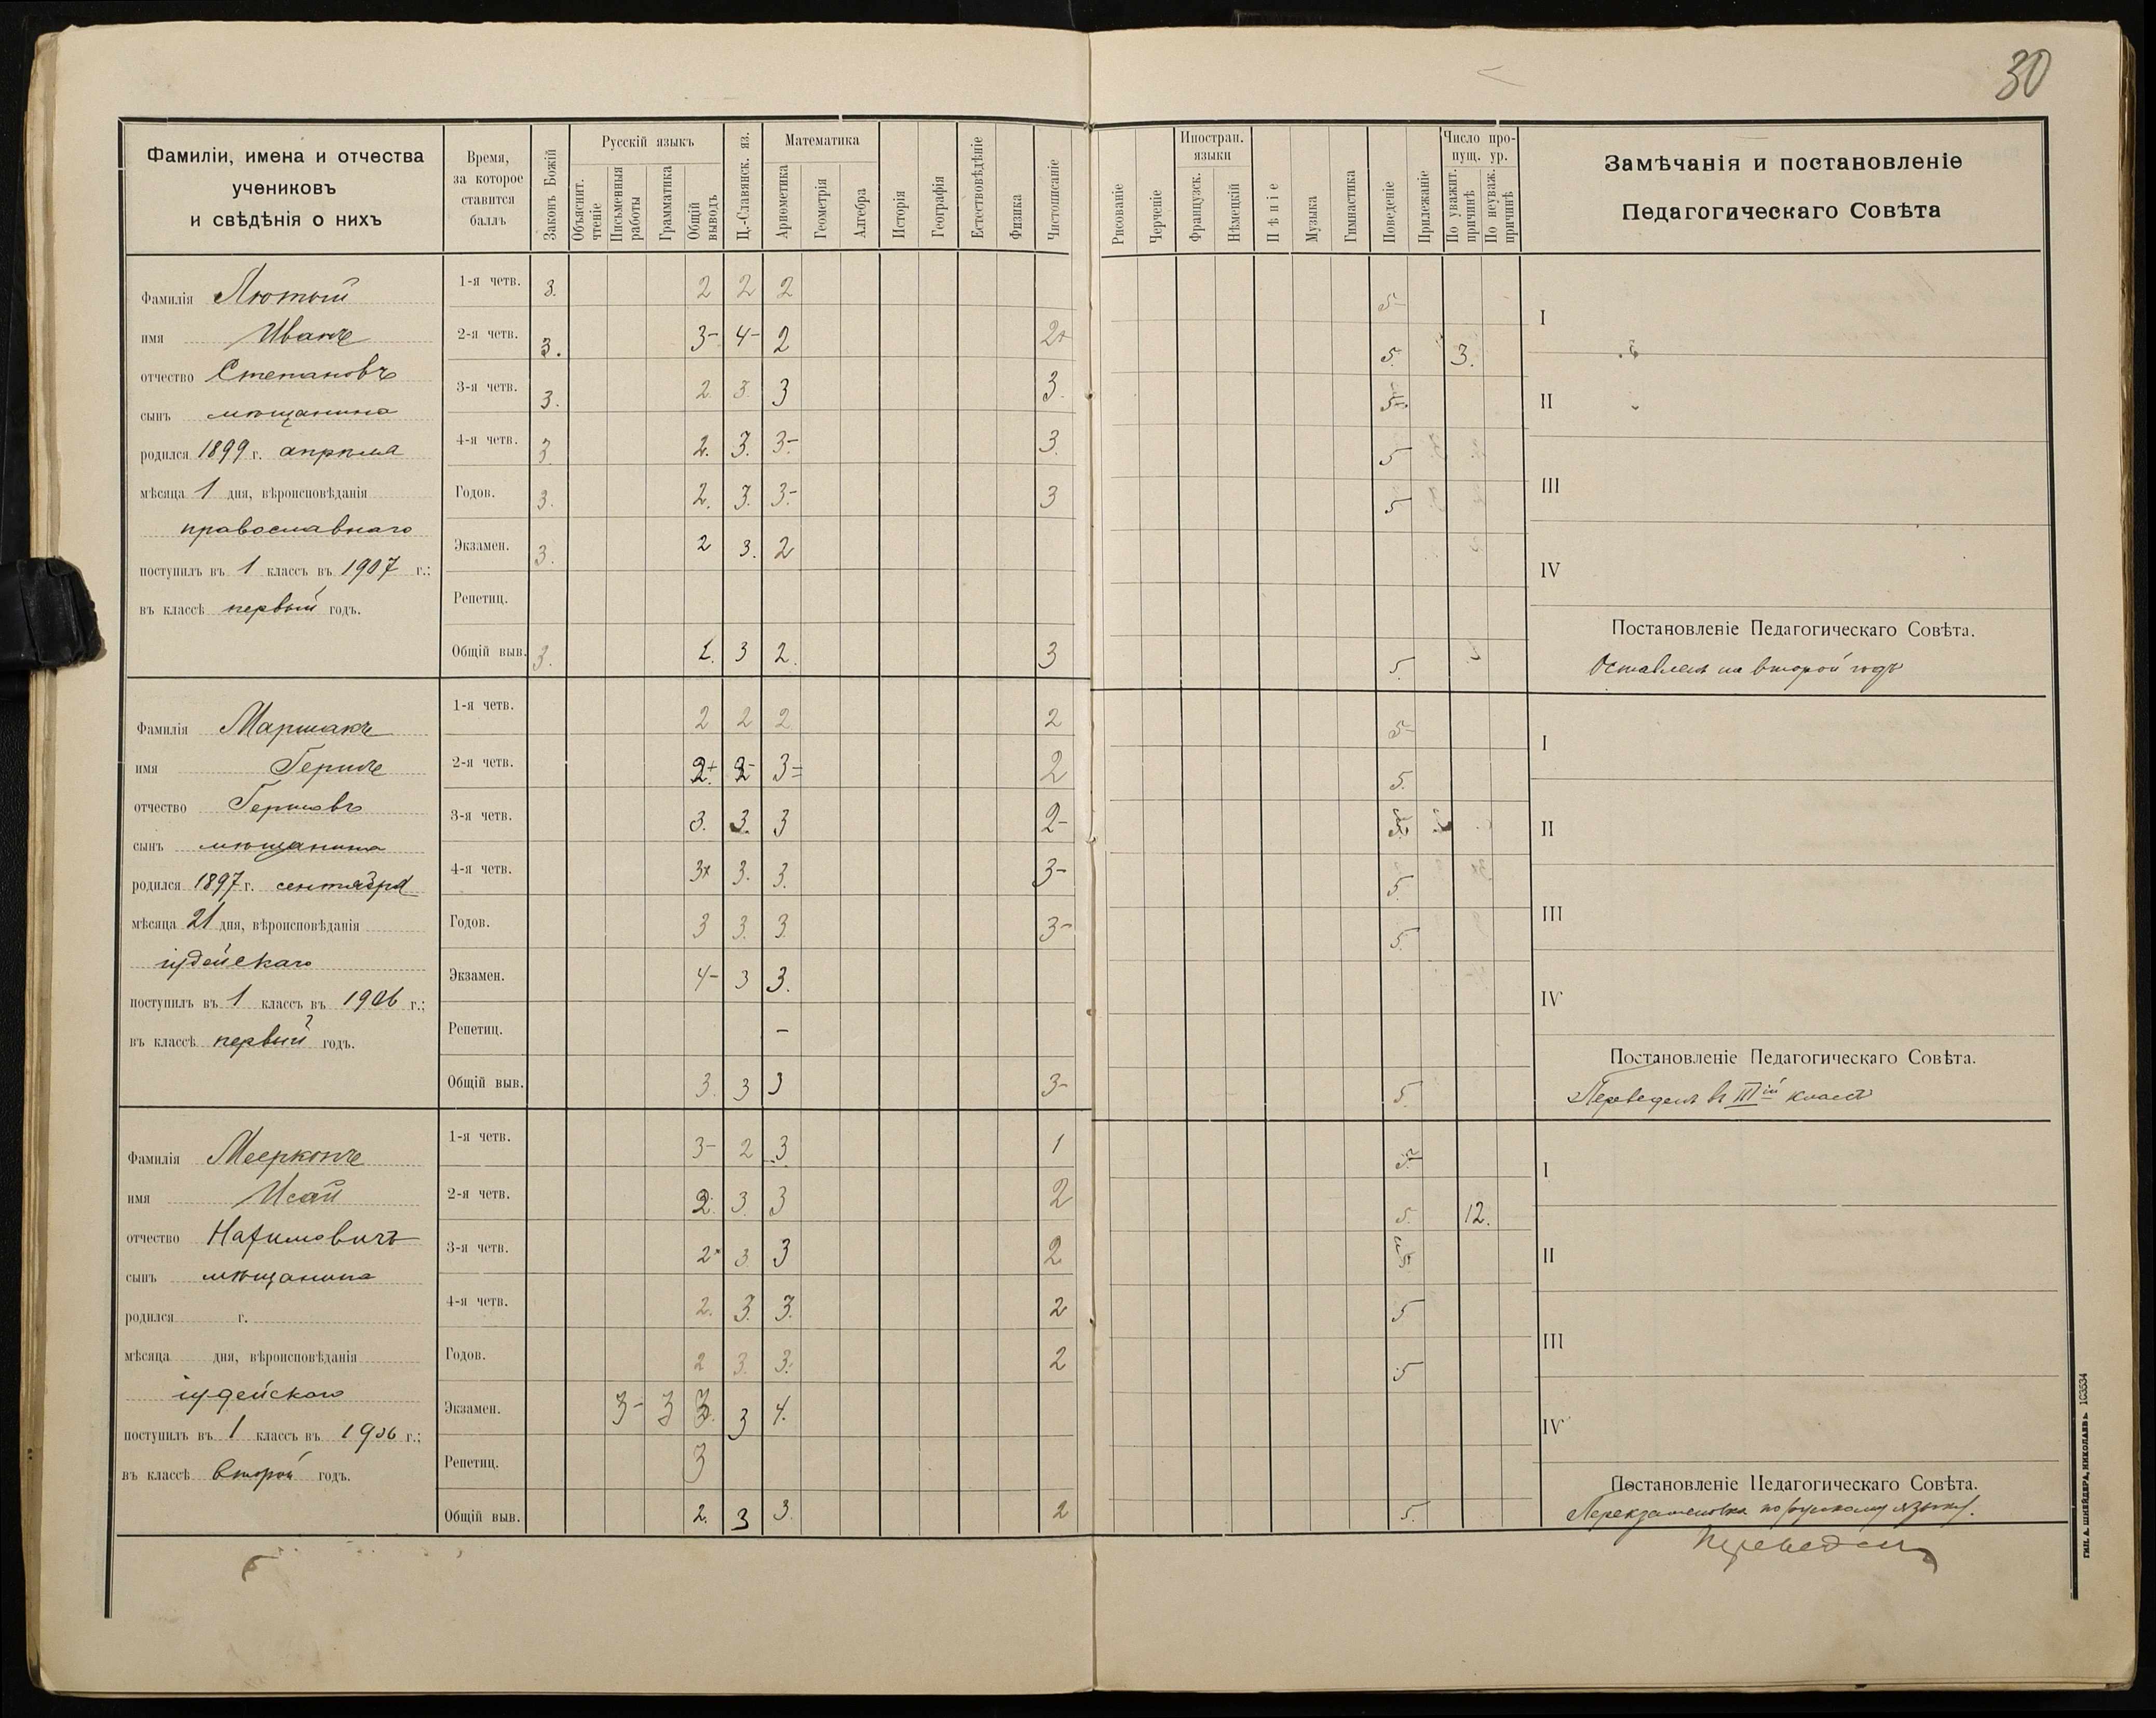 30
Фамиліи, имена и отчества
учениковъ
и свѣдѣнія о нихъ
Время,
за которое
ставится
баллъ
Законъ Божій
Русскій языкъ
Объяснит.
чтеніе
Письменныя
работы
Грамматика
Общій
выводъ
Ц.-Славянск. яз.
Математика
Ариѳметика
Геометрія
Алгебра
Исторія
Географія
Естествовѣдѣніе
Физика
Чистописаніе
Рисованіе
Черченіе
Иностран.
языки
Французск.
Нѣмецкій
Пѣніе
Музыка
Гимнастика
Поведеніе
Прилежаніе
Число про-
пущ. ур.
По уважит.
причинѣ
По неуваж.
причинѣ
Замѣчанія и постановленіе
Педагогическаго Совѣта
Фамилія Лютый
имя Иванъ
отчество Степановъ
сынъ мѣщанина
родился 1899 г. апрѣля
мѣсяца 1 дня, вѣроисповѣданія
православнаго
поступилъ въ 1 классъ въ 1907 г.;
въ классѣ первый годъ.
1-я четв. 3. 2 2 2 5-
2-я четв. 3. 3- 4- 2 2+ 5. 3.
3-я четв. 3. 2. 3. 3 3. 5
4-я четв. 3. 2. 3. 3- 3. 5
Годов. 3. 2. 3. 3- 3 5
Экзамен. 3. 2 3. 2
Репетиц.
Общій выв. 3. 2. 3 2. 3 5.
I
II
III
IV
Постановленіе Педагогическаго Совѣта.
Оставленъ на второй годъ
Фамилія Маршакъ
имя Гершъ
отчество Гершовъ
сынъ мѣщанина
родился 1897 г. сентября
мѣсяца 21 дня, вѣроисповѣданія
іудейскаго
поступилъ въ 1 классъ въ 1906 г.;
въ классѣ первый годъ.
1-я четв. 2 2 2 2 5-
2-я четв. 2+ 2- 3= 2 5.
3-я четв. 3. 3. 3 2-
4-я четв. 3+ 3. 3. 3- 5.
Годов. 3 3. 3. 3- 5.
Экзамен. 4- 3 3.
Репетиц. -
Общій выв. 3. 3 3 3- 5.
I
II
III
IV
Постановленіе Педагогическаго Совѣта.
Переведенъ въ III ій классъ
Фамилія Мееркопъ
имя Исай
отчество Нахимовичъ
сынъ мѣщанина
родился г.
мѣсяца дня, вѣроисповѣданія
іудейскаго
поступилъ въ 1 классъ въ 1906 г.;
въ классѣ второй годъ.
1-я четв. 3- 2 3 1
2-я четв. 2. 3. 3 2 5. 12.
3-я четв. 2+ 3 3 2
4-я четв. 2. 3. 3. 2 5
Годов. 2 3. 3. 2 5
Экзамен. 3- 3 3. 3 4.
Репетиц. 3
Общій выв. 2. 3 3. 2 5.
I
II
III
IV
Постановленіе Педагогическаго Совѣта.
Переэкзаменовка по русскому языку.
Переведенъ
ТИП. А. ШНЕЙДЕРА, НИКОЛАЕВЪ. 103534